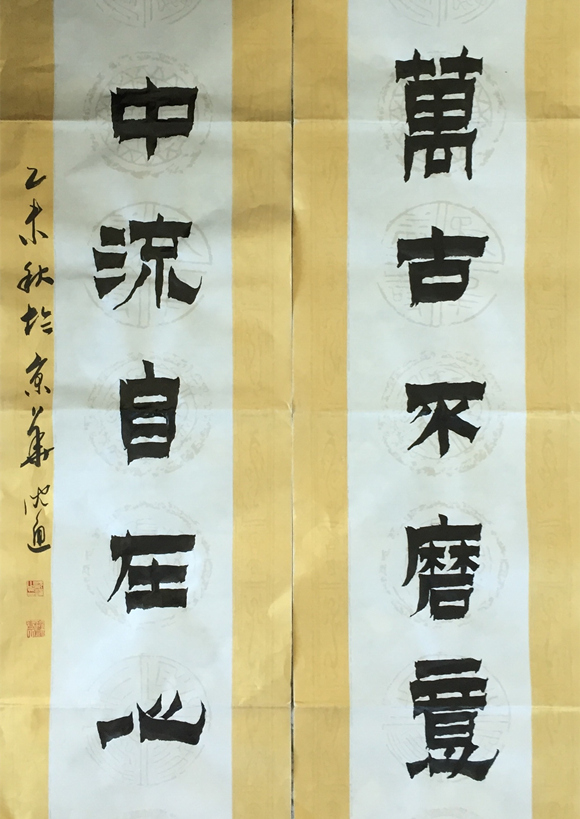 萬古不磨意
中流自在心
乙未秋於京華沈